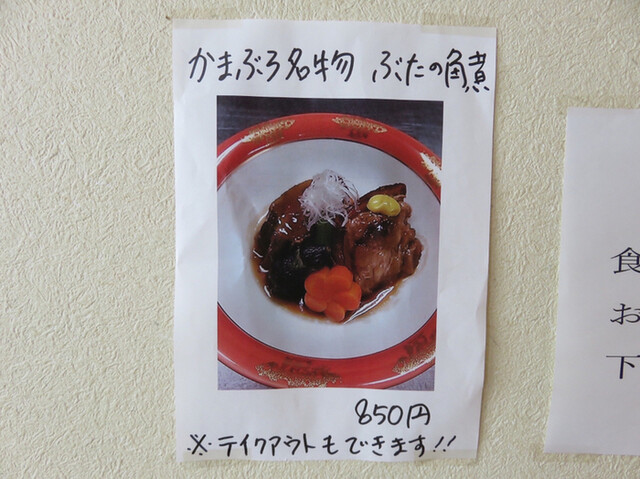 かまぶろ名物 ぶたの角煮
850円
※テイクアウトもできます!!
食
お
下